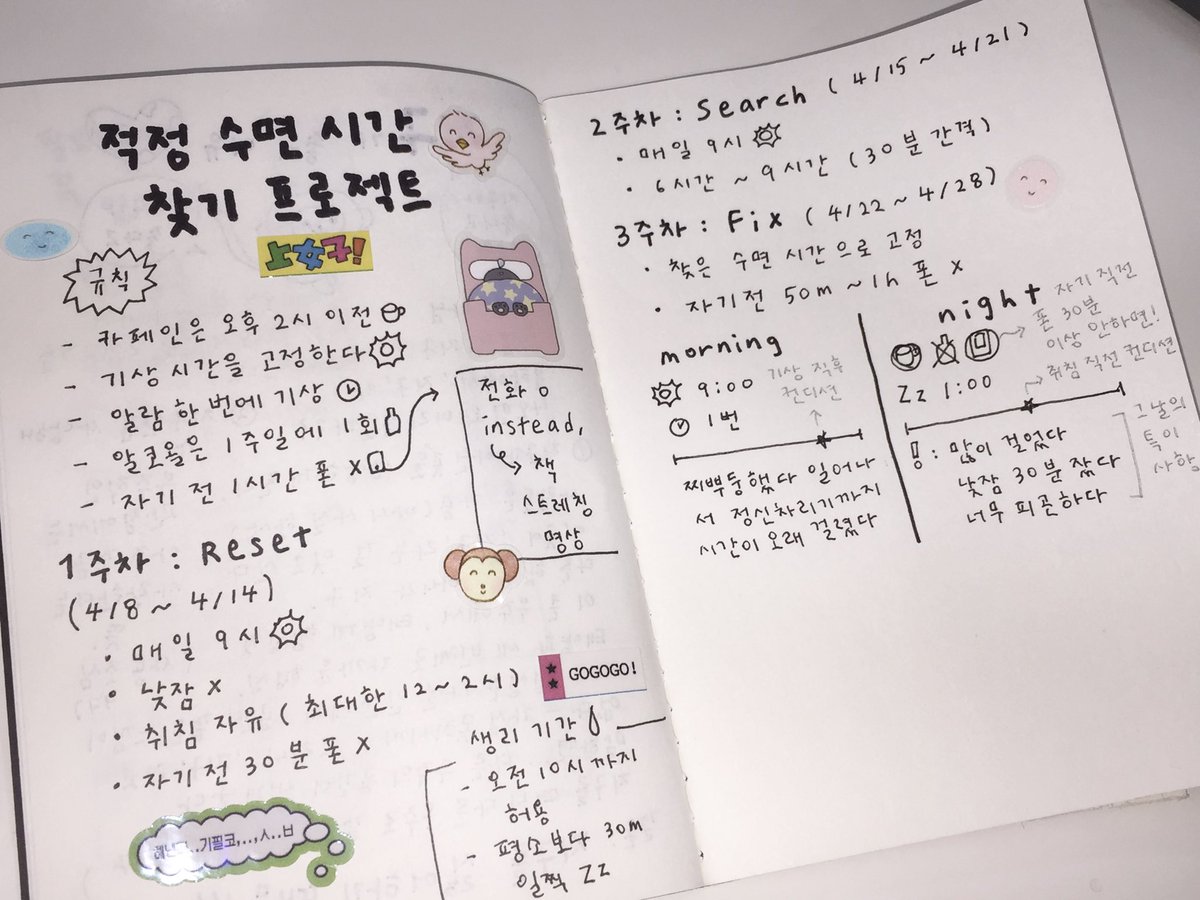 적정 수면 시간
찾기 프로젝트
규칙
- 카페인은 오후 2시 이전
- 기상 시간을 고정한다
- 알람 한 번에 기상
- 알코올은 1주일에 1회
- 자기 전 1시간 폰 X
전화 O
instead,
책
스트레칭
명상
1주차 : Reset
(4/8 ~ 4/14)
• 매일 9시
• 낮잠 X
• 취침 자유 ( 최대한 12~2시)
• 자기 전 30분 폰 X
GOGOGO!
생리 기간
- 오전 10시까지
허용
- 평소보다 30m
일찍 Zz
..기필코,..,ㅅ..ㅂ
2주차 : Search ( 4/15 ~ 4/21)
• 매일 9시
• 6시간 ~ 9시간 (30분 간격)
3주차 : Fix ( 4/22 ~ 4/28)
• 찾은 수면 시간으로 고정
• 자기전 50m ~ 1h 폰 X
morning
9:00
1번
기상 직후
컨디션
찌뿌둥했다 일어나
서 정신차리기까지
시간이 오래 걸렸다
night
자기 직전
폰 30분
이상 안하면!
Zz 1:00
취침 직전 컨디션
: 많이 걸었다
낮잠 30분 잤다
너무 피곤하다
그날의
특이
사항